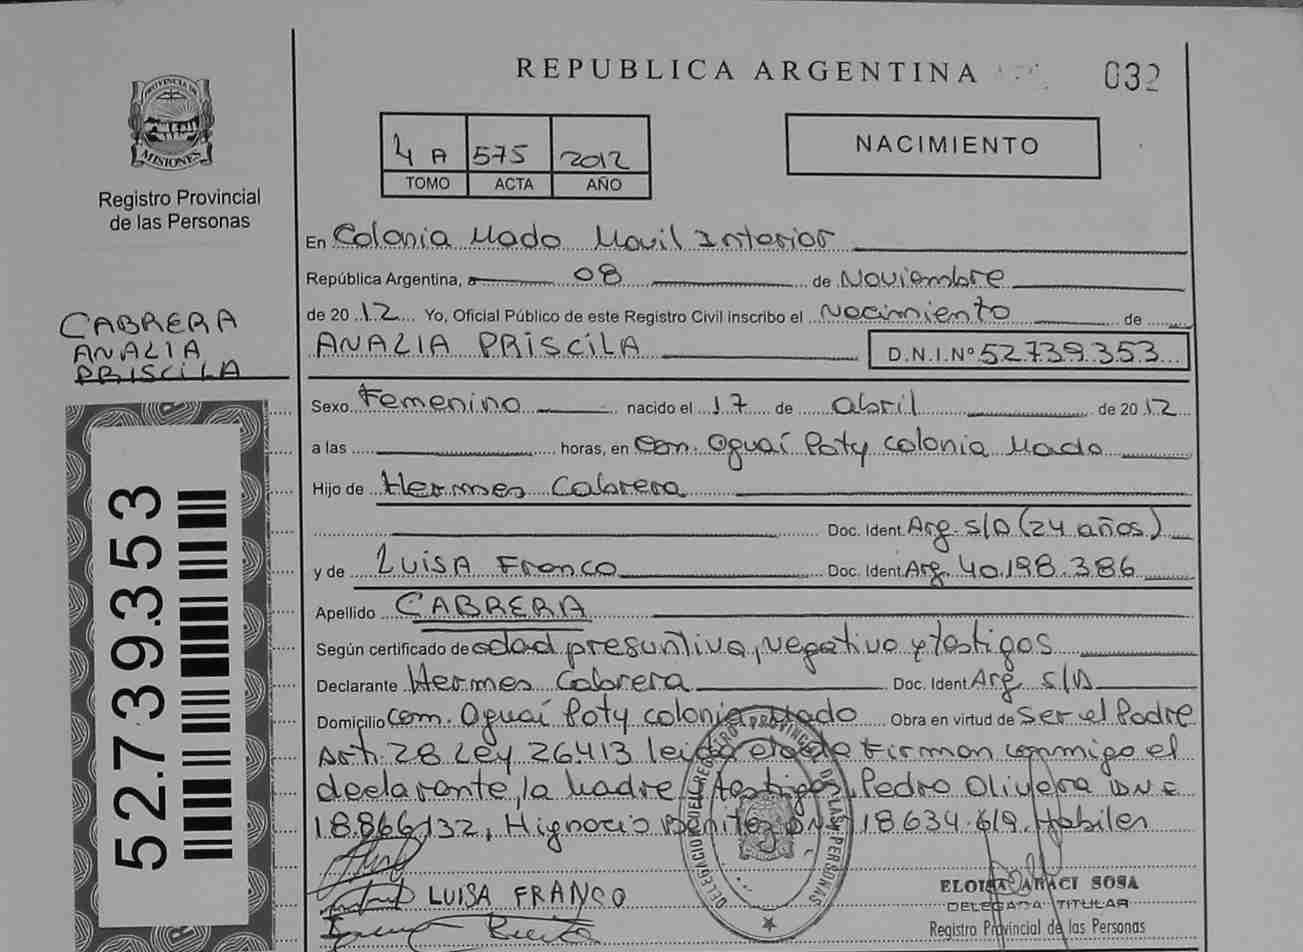 REPUBLICA ARGENTINA
032
PROVINCIA DE
MISIONES
Registro Provincial
de las Personas
4 A 575 2012
TOMO ACTA AÑO
NACIMIENTO
En Colonia Mado Movil Interior
República Argentina, a 08 de Noviembre
de 2012 Yo, Oficial Público de este Registro Civil inscribo el Nacimiento de
ANALIA PRISCILA D.N.I.Nº 52.739.353
CABRERA
ANALIA
PRISCILA
Sexo Femenino nacido el 17 de abril de 2012
a las horas, en Com. Oguaí Poty colonia Mado
Hijo de Hermes Cabrera
Doc. Ident. Arg. S/D (24 años)
y de LUISA Franco Doc. Ident. Arg. 40.198.386
Apellido CABRERA
Según certificado de edad presuntiva, negativo y testigos
Declarante Hermes Cabrera Doc. Ident. Arg S/D
Domicilio com. Oguaí Poty colonia Mado Obra en virtud de Ser el Padre
Art. 28 Ley 26.413 leida el acta firman conmigo el
declarante, la Madre y testigos, Pedro Olivera DNI
18.866.132, Hignacio Benitez DNI 18634.619. Habiles
52.739.353
LUISA FRANCO
DELEGACION DEL REGISTRO PROVINCIAL DE LAS PERSONAS
ELOISA ARACI SOSA
DELEGADA TITULAR
Registro Provincial de las Personas